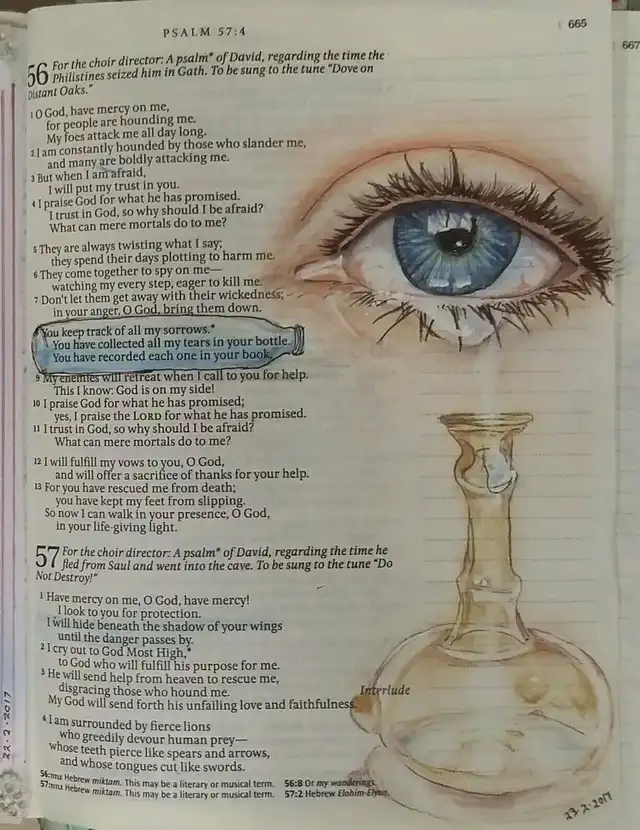 PSALM 57:4
665
667
56 For the choir director: A psalm* of David, regarding the time the
Philistines seized him in Gath. To be sung to the tune “Dove on
Distant Oaks.”
1 O God, have mercy on me,
for people are hounding me.
My foes attack me all day long.
2 I am constantly hounded by those who slander me,
and many are boldly attacking me.
3 But when I am afraid,
I will put my trust in you.
4 I praise God for what he has promised.
I trust in God, so why should I be afraid?
What can mere mortals do to me?
5 They are always twisting what I say;
they spend their days plotting to harm me.
6 They come together to spy on me—
watching my every step, eager to kill me.
7 Don't let them get away with their wickedness;
in your anger, O God, bring them down.
You keep track of all my sorrows.*
You have collected all my tears in your bottle.
You have recorded each one in your book.
9 My enemies will retreat when I call to you for help.
This I know: God is on my side!
10 I praise God for what he has promised;
yes, I praise the LORD for what he has promised.
11 I trust in God, so why should I be afraid?
What can mere mortals do to me?
12 I will fulfill my vows to you, O God,
and will offer a sacrifice of thanks for your help.
13 For you have rescued me from death;
you have kept my feet from slipping.
So now I can walk in your presence, O God,
in your life-giving light.
57 For the choir director: A psalm* of David, regarding the time he
fled from Saul and went into the cave. To be sung to the tune “Do
Not Destroy!”
1 Have mercy on me, O God, have mercy!
I look to you for protection.
I will hide beneath the shadow of your wings
until the danger passes by.
2 I cry out to God Most High,*
to God who will fulfill his purpose for me.
3 He will send help from heaven to rescue me,
disgracing those who hound me.
Interlude
My God will send forth his unfailing love and faithfulness.
4 I am surrounded by fierce lions
who greedily devour human prey—
whose teeth pierce like spears and arrows,
and whose tongues cut like swords.
56:TITLE Hebrew miktam. This may be a literary or musical term. 56:8 Or my wanderings.
57:TITLE Hebrew miktam. This may be a literary or musical term. 57:2 Hebrew Elohim-Elyon.
22-2-2017
23-2-2017